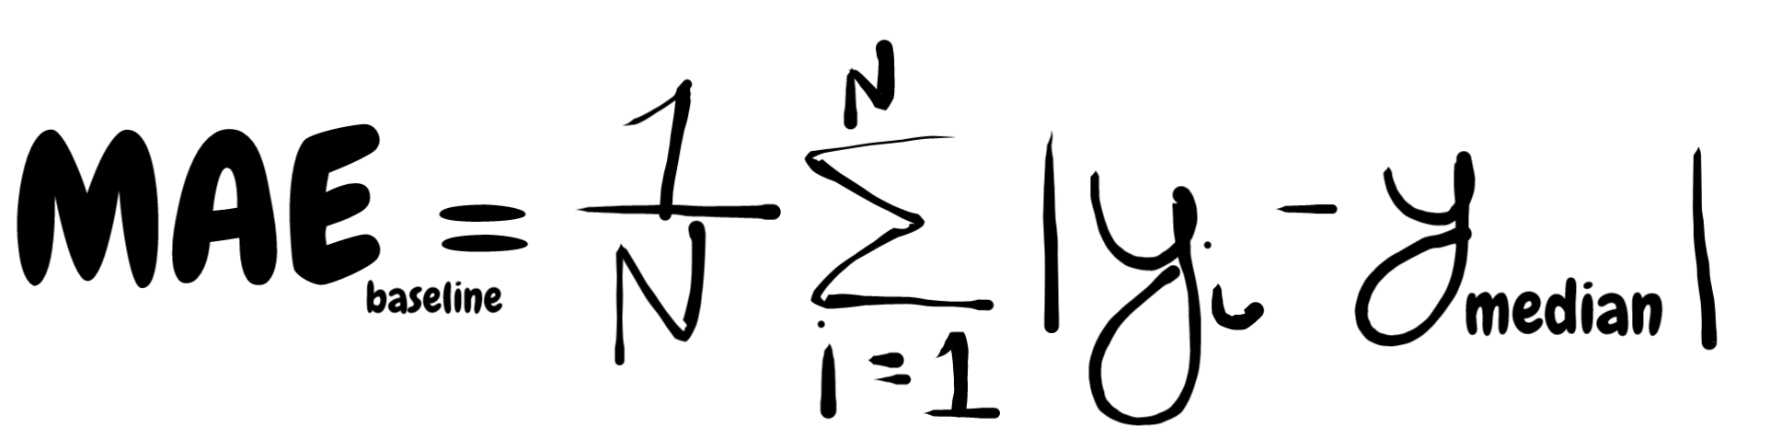 MAE baseline = 1/N N∑i=1 |yi - y median|